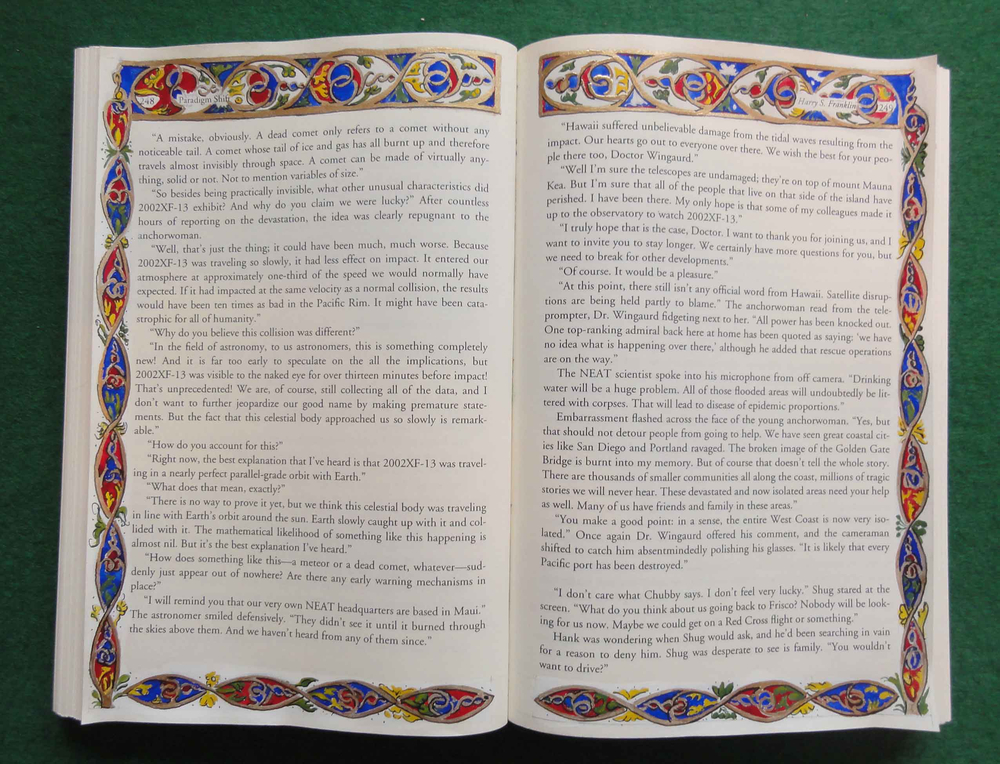 248 Paradigm Shift
“A mistake, obviously. A dead comet only refers to a comet without any
noticeable tail. A comet whose tail of ice and gas has all burnt up and therefore
travels almost invisibly through space. A comet can be made of virtually any-
thing, solid or not. Not to mention variables of size.”
“So besides being practically invisible, what other unusual characteristics did
2002XF-13 exhibit? And why do you claim we were lucky?” After countless
hours of reporting on the devastation, the idea was clearly repugnant to the
anchorwoman.
“Well, that’s just the thing; it could have been much, much worse. Because
2002XF-13 was traveling so slowly, it had less effect on impact. It entered our
atmosphere at approximately one-third of the speed we would normally have
expected. If it had impacted at the same velocity as a normal collision, the results
would have been ten times as bad in the Pacific Rim. It might have been cata-
strophic for all of humanity.”
“Why do you believe this collision was different?”
“In the field of astronomy, to us astronomers, this is something completely
new! And it is far too early to speculate on the all the implications, but
2002XF-13 was visible to the naked eye for over thirteen minutes before impact!
That’s unprecedented! We are, of course, still collecting all of the data, and I
don’t want to further jeopardize our good name by making premature state-
ments. But the fact that this celestial body approached us so slowly is remark-
able.”
“How do you account for this?”
“Right now, the best explanation that I’ve heard is that 2002XF-13 was travel-
ing in a nearly perfect parallel-grade orbit with Earth.”
“What does that mean, exactly?”
“There is no way to prove it yet, but we think this celestial body was traveling
in line with Earth’s orbit around the sun. Earth slowly caught up with it and col-
lided with it. The mathematical likelihood of something like this happening is
almost nil. But it’s the best explanation I’ve heard.”
“How does something like this—a meteor or a dead comet, whatever—sud-
denly just appear out of nowhere? Are there any early warning mechanisms in
place?”
“I will remind you that our very own NEAT headquarters are based in Maui.”
The astronomer smiled defensively. “They didn’t see it until it burned through
the skies above them. And we haven’t heard from any of them since.”
Harry S. Franklin 249
“Hawaii suffered unbelievable damage from the tidal waves resulting from the
impact. Our hearts go out to everyone over there. We wish the best for your peo-
ple there too, Doctor Wingaurd.”
“Well I’m sure the telescopes are undamaged; they’re on top of mount Mauna
Kea. But I’m sure that all of the people that live on that side of the island have
perished. I have been there. My only hope is that some of my colleagues made it
up to the observatory to watch 2002XF-13.”
“I truly hope that is the case, Doctor. I want to thank you for joining us, and I
want to invite you to stay longer. We certainly have more questions for you, but
we need to break for other developments.”
“Of course. It would be a pleasure.”
“At this point, there still isn’t any official word from Hawaii. Satellite disrup-
tions are being held partly to blame.” The anchorwoman read from the tele-
prompter, Dr. Wingaurd fidgeting next to her. “All power has been knocked out.
One top-ranking admiral back here at home has been quoted as saying: ‘we have
no idea what is happening over there,’ although he added that rescue operations
are on the way.”
The NEAT scientist spoke into his microphone from off camera. “Drinking
water will be a huge problem. All of those flooded areas will undoubtedly be lit-
tered with corpses. That will lead to disease of epidemic proportions.”
Embarrassment flashed across the face of the young anchorwoman. “Yes, but
that should not detour people from going to help. We have seen great coastal cit-
ies like San Diego and Portland ravaged. The broken image of the Golden Gate
Bridge is burnt into my memory. But of course that doesn’t tell the whole story.
There are thousands of smaller communities all along the coast, millions of tragic
stories we will never hear. These devastated and now isolated areas need your help
as well. Many of us have friends and family in these areas.”
“You make a good point: in a sense, the entire West Coast is now very iso-
lated.” Once again Dr. Wingaurd offered his comment, and the cameraman
shifted to catch him absentmindedly polishing his glasses. “It is likely that every
Pacific port has been destroyed.”
“I don’t care what Chubby says. I don’t feel very lucky.” Shug stared at the
screen. “What do you think about us going back to Frisco? Nobody will be look-
ing for us now. Maybe we could get on a Red Cross flight or something.”
Hank was wondering when Shug would ask, and he’d been searching in vain
for a reason to deny him. Shug was desperate to see is family. “You wouldn’t
want to drive?”